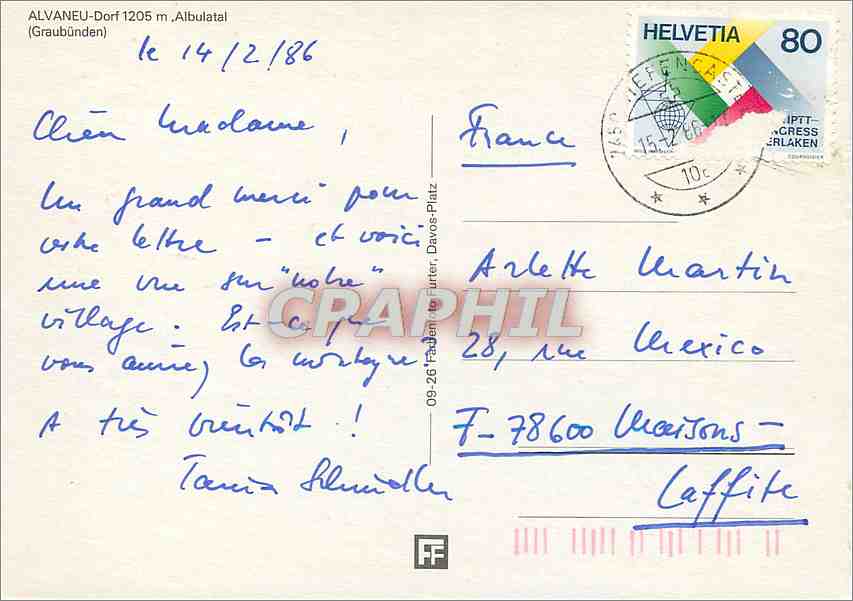 ALVANEU-Dorf 1205 m ,Albulatal
(Graubünden)
le 14/2/86
Chère Madame,
Un grand merci pour
votre lettre - et voici
une vue sur "notre"
village. Est-ce que
vous aimez les montagnes?
A très bientôt!
Tania Schindler
09-26 Farbenfoto Furter, Davos-Platz
FF
HELVETIA 80
TIEFENCASTEL
15-2-86
10c
IPTT-
NGRESS
ERLAKEN
France
Arlette Martin
28, rue Mexico
F-78600 Maisons-
Laffite
CPAPHIL